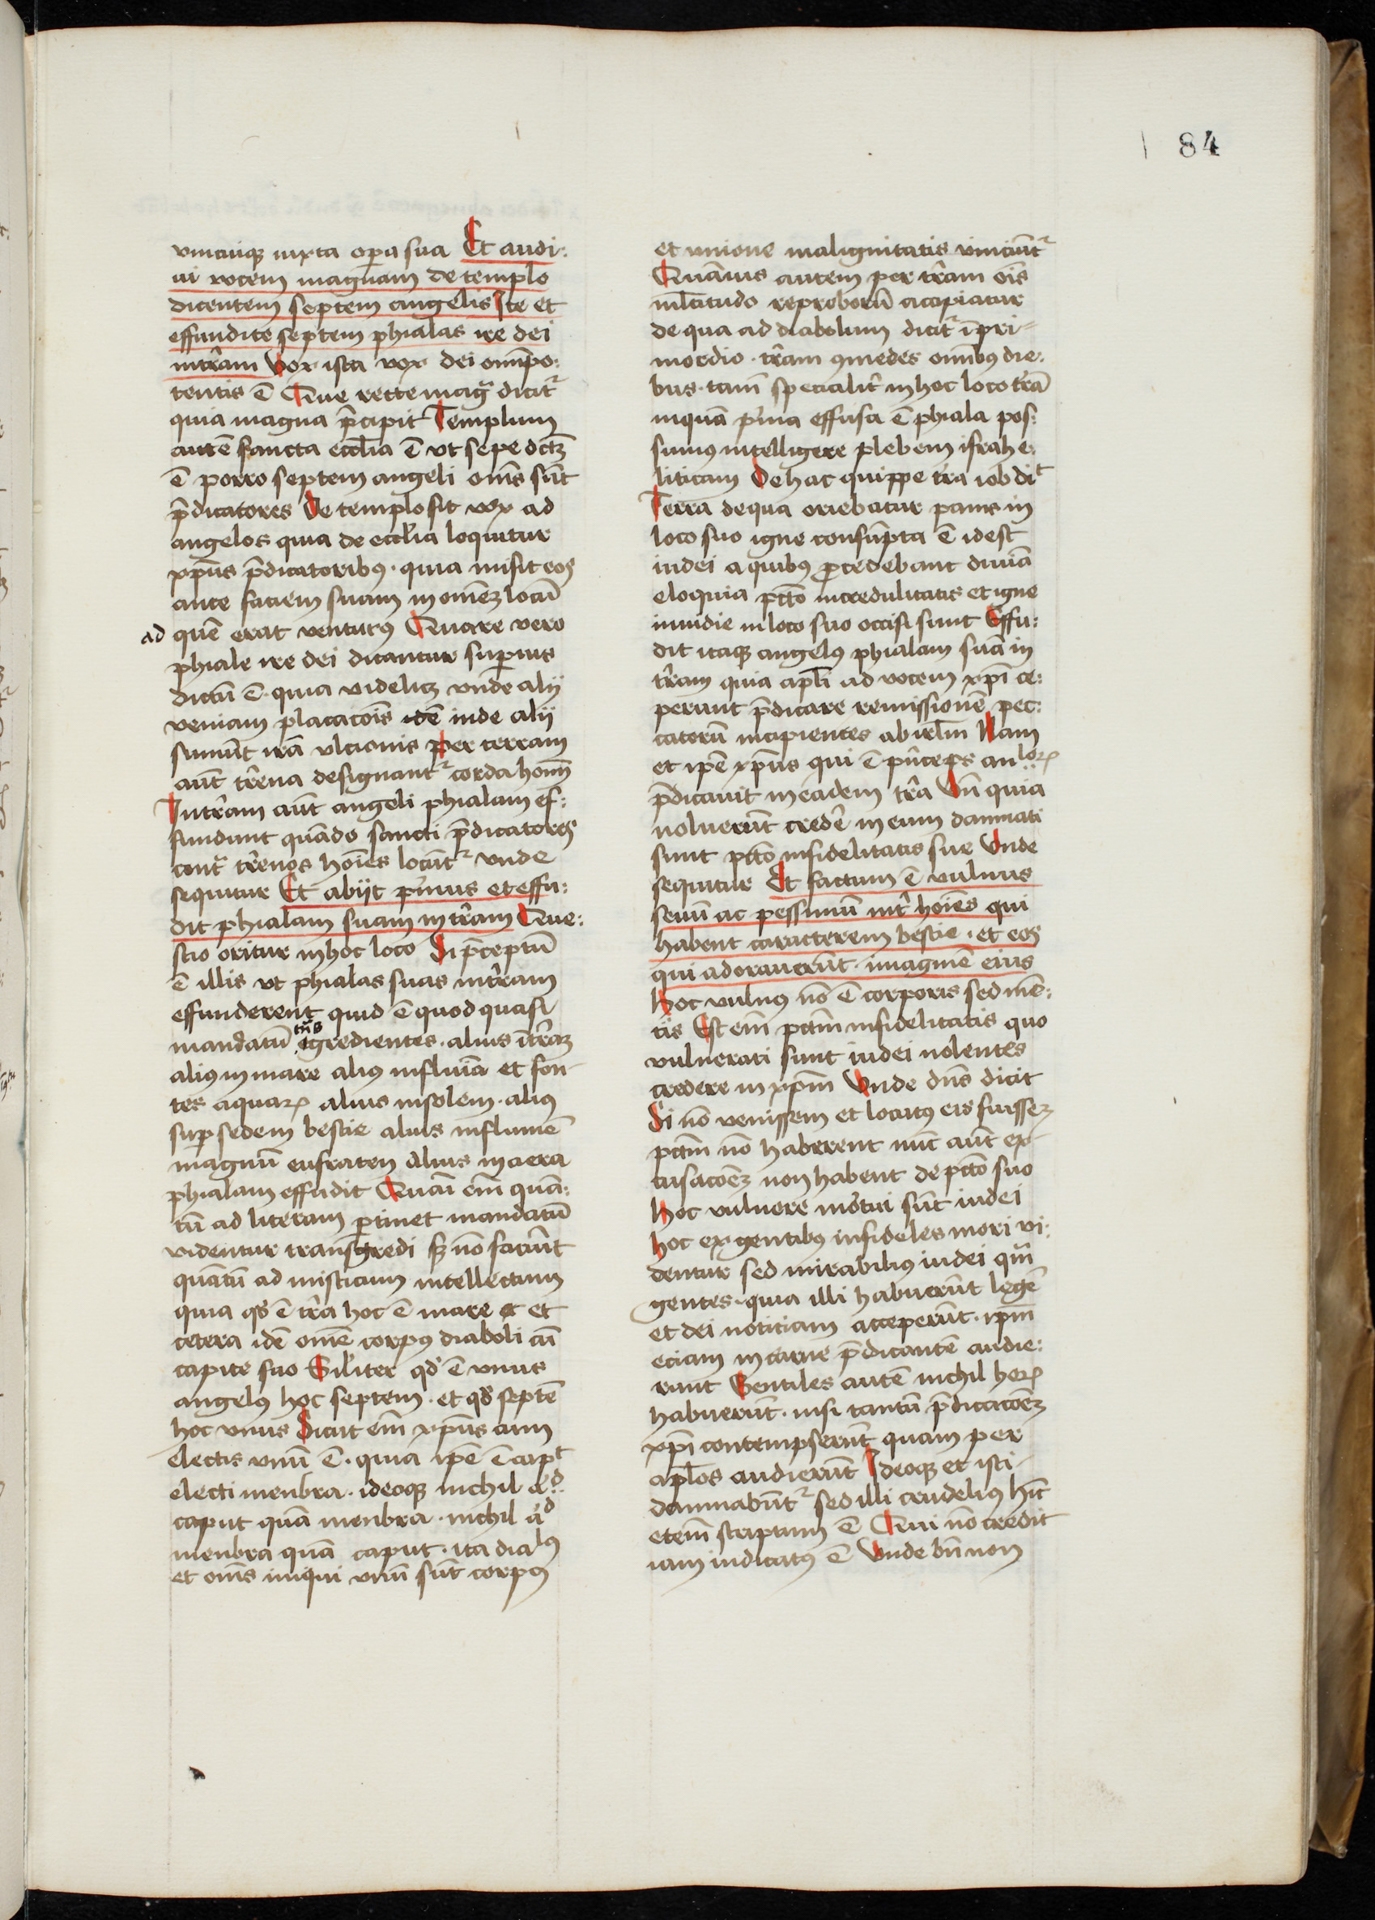 84
vnicuiqꝫ iuxta oꝑa sua Et audi:
ui vocem magnam de templo
dicentem septem angelis Ite et
effundite septem phialas ire dei
in tr̄am Vox ista vox dei omīpo:
tentis ē Que recte mag̃ dicit᷑
quia magna p̄cipit Templum
autē sancta eccl̄ia ē vt sepe dc̄m
ē porro septem angeli om̄s sūt
p̄dicatores De templo fit vox ad
angelos quia de eccl̄ia loquitur
xp̄us p̄dicatoribꝰ · quia misit eos
ante faciem suam in om̄eꝫ locū
ad quē erat venturꝰ Quare vero
phiale ire dei dicantur suꝑius
dictū ē · quia videlicꝫ vnde alij
veniam placac̄ois idē inde alij
sumūt irā vlcionis Per terram
aūt tr̄ena designant᷑ corda hoīm
In tr̄am aūt angeli phialam ef:
fundunt quādo sancti p̄dicatores
cont᷑ tr̄enos hoīes locūt᷑ vnde
sequitur Et abijt p̄mus et effu:
dit phialam suam in tr̄am Que:
stio oritur in hoc loco Si p̄ceptū
ē illis vt phialas suas in tr̄am
effunderent quid ē quod quasi
mandatū tn̄sgredientes · alius ī tr̄aꝫ
aliꝰ in mare aliꝰ in fluīa et fon
tes aquaꝝ alius in solem · aliꝰ
suꝑ sedem bestie alius in flumē
magnū eufraten Alius in aera
phialam effudit Quāī em̄ quā:
tū ad literam ꝑtinet mandatū
videntur transgredi sꝫ nō faciūt
quātū ad misticum intellectum
quia qđ ē tr̄a hoc ē mare et
cetera idē om̄e corpꝰ diaboli cū
capite suo Sil̄iter qđ ē vnus
angelꝰ hoc septem · et qđ septē
hoc vnus Sicut em̄ xp̄us cum
electis vnū ē · quia ip̄e ē capt᷑
electi menbra · ideoqꝫ nichil aᵈ
caput quā menbra · nichil aᵈ
menbra quā caput · ita dialꝰ
et om̄s iniqui vnū sūt corpꝰ
et vnione malignitatis vinciūt᷑
Quāuis autem per tr̄am oīs
ml̄titudo reproborū accipiatur
de qua ad diabolum dicit᷑ ī pri
mordio · tr̄am ꝯmedes omībꝰ die:
bus · tam̄ specialit᷑ in hoc loco tr̄ā
in quā p̄ma effusa ē phiala pos:
sumꝰ intelligere plebem israhe:
liticam De hac quippe tr̄a iob dit᷑
Terra de qua oriebatur panis in
loco suo igne consūpta ē idest
iudei a quibꝰ ꝓcedebant diuīa
eloquia pctō incredulitatis et igne
inuidie in loco suo occisi sunt Effu:
dit itaqꝫ angelꝰ phialam suā in
tr̄am quia apl̄i ad vocem xp̄i ce:
perunt p̄dicare remissionē pec:
catorū incipientes ab irl̄m Nam
et ip̄e xp̄us qui ē p̄nceps an loꝝ
p̄dicauit in eadem tr̄a Vn̄ quia
noluerūt creder̄ in eum damnati
sunt pctō infidelitatis sue Vnde
sequitur Et factum ē vulnus
seuū ac pessimū int᷑ hoīes qui
habent caracterem bestie · et eos
qui adorauerūt · imaginē eius
Hoc vulnꝰ nō ē corporis sed mē:
tis Est em̄ pctm̄ infidelitatis quo
vulnerati sunt iudei nolentes
credere in xp̄m Vnde dn̄s dicit
Si nō venissem et locutꝰ eis fuisseꝫ
pctm̄ nō haberent nūc aūt ex
cusac̄oeꝫ non habent de pctō suo
Hoc vulnere mortui sūt iudei
hoc ex gentibꝰ infideles mori vi:
dentur sed mirabiliꝰ iudei qm̄
gentes · quia illi habuerūt legē
et dei noticiam acceperūt · ip̄m
eciam in carne p̄dicantē audie:
runt Gentiles autē nichil hoꝝ
habuerūt · nisi tantū p̄dicac̄oeꝫ
xp̄i contempserūt quam per
apl̄os audierūt Ideoqꝫ et isti
damnabūt᷑ sed illi crudeliꝰ hīc
etem̄ scriptum ē Qui nō credit
iam iudicatꝰ ē Vnde bn̄ non